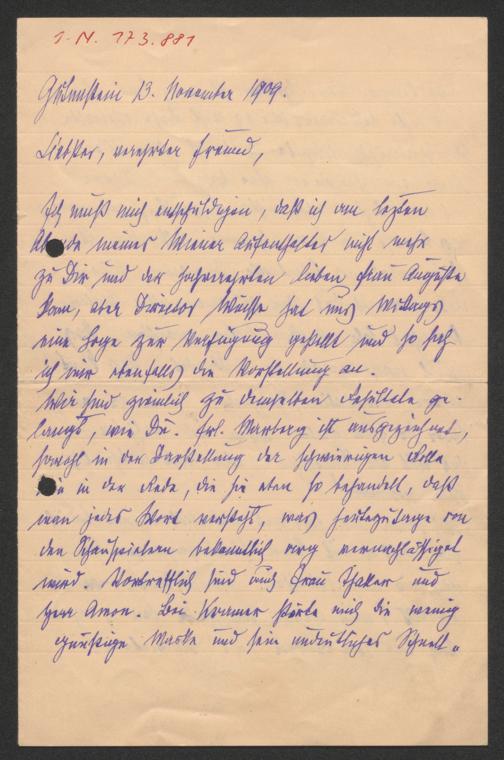 I.N. 173.881
Gutenstein 13. November 1909.
Liebster, verehrter Freund,
Ich muß mich entschuldigen, daß ich am letzten
Abende meines Wiener Aufenthaltes nicht mehr
zu Dir und der hochverehrten lieben Frau Auguste
kam, aber Director Weisse hat uns Mittags
eine Loge zur Verfügung gestellt und so sah
ich mir ebenfalls die Vorstellung an.
Wir sind ziemlich zu demselben Resultate ge-
langt, wie Du. Frl. Marberg ist ausgezeichnet,
sowohl in der Darstellung der schwierigen Rolle
in der Rede, die sie eben so behandelt, daß
man jedes Wort versteht, was heutzutage von
den Schauspielern bekanntlich arg vernachlässiget
wird. Vortrefflich sind auch Frau Thaller und
Herr Amon. Bei Kramer störte mich die wenig
günstige Maske und sein undeutliches Schnell-